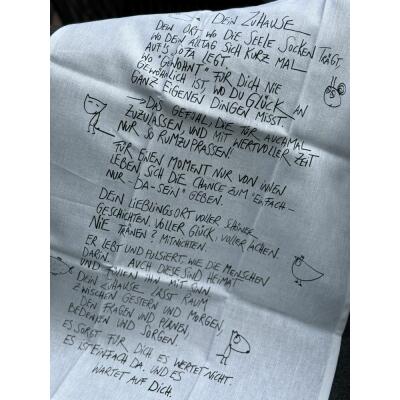 DEIN ZUHAUSE
DEIN ORT, WO DIE SEELE SOCKEN TRÄGT,
WO DEIN ALLTAG SICH KURZ MAL
AUF'S SOFA LEGT.
WO "GEWOHNT" FÜR DICH NIE
GEWÖHNLICH IST, WO DU GLÜCK AN
GANZ EIGENEN DINGEN MISST.
DAS GEFÜHL, DIE TÜR AUCH MAL
ZUZULASSEN, UND MIT WERTVOLLER ZEIT
NUR SO RUMZUPRASSEN!
FÜR EINEN MOMENT NUR VON INNEN
LEBEN SICH DIE CHANCE ZUM "EINFACH-
NUR-DA-SEIN" GEBEN.
DEIN LIEBLINGSORT VOLLER SCHÖNER
GESCHICHTEN. VOLLER GLÜCK. VOLLER LACHEN.
NIE TRÄNEN? MITNICHTEN.
ER LEBT UND PULSIERT WIE DIE MENSCHEN
DARIN. AUCH DIESE SIND HEIMAT
UND FÜLLEN IHN MIT SINN.
DEIN ZUHAUSE LÄSST RAUM
ZWISCHEN GESTERN UND MORGEN,
DEN FRAGEN UND PLÄNEN,
BEDENKEN UND SORGEN.
ES SORGT FÜR DICH. ES WERTET NICHT.
ES IST EINFACH DA. UND ES
WARTET AUF DICH.